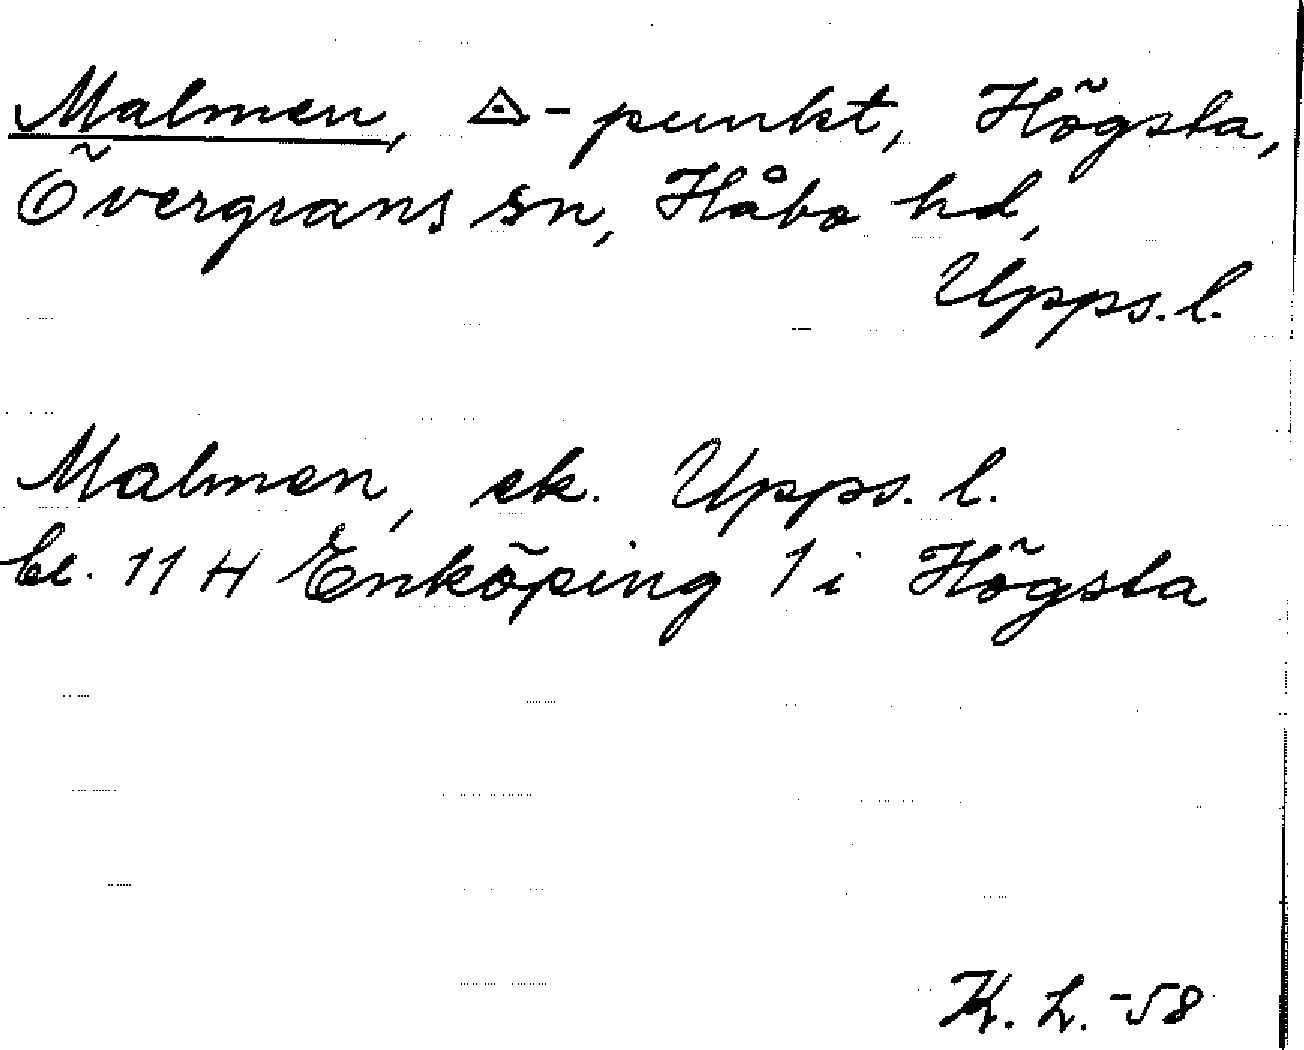 Malmen, ◬-punkt, Högsta,
Övergrans sn, Håbo hd,
Upps. l.
Malmen, ek. Upps. l.
bl. 11 H Enköping 1 i Högsta
K. L. -58